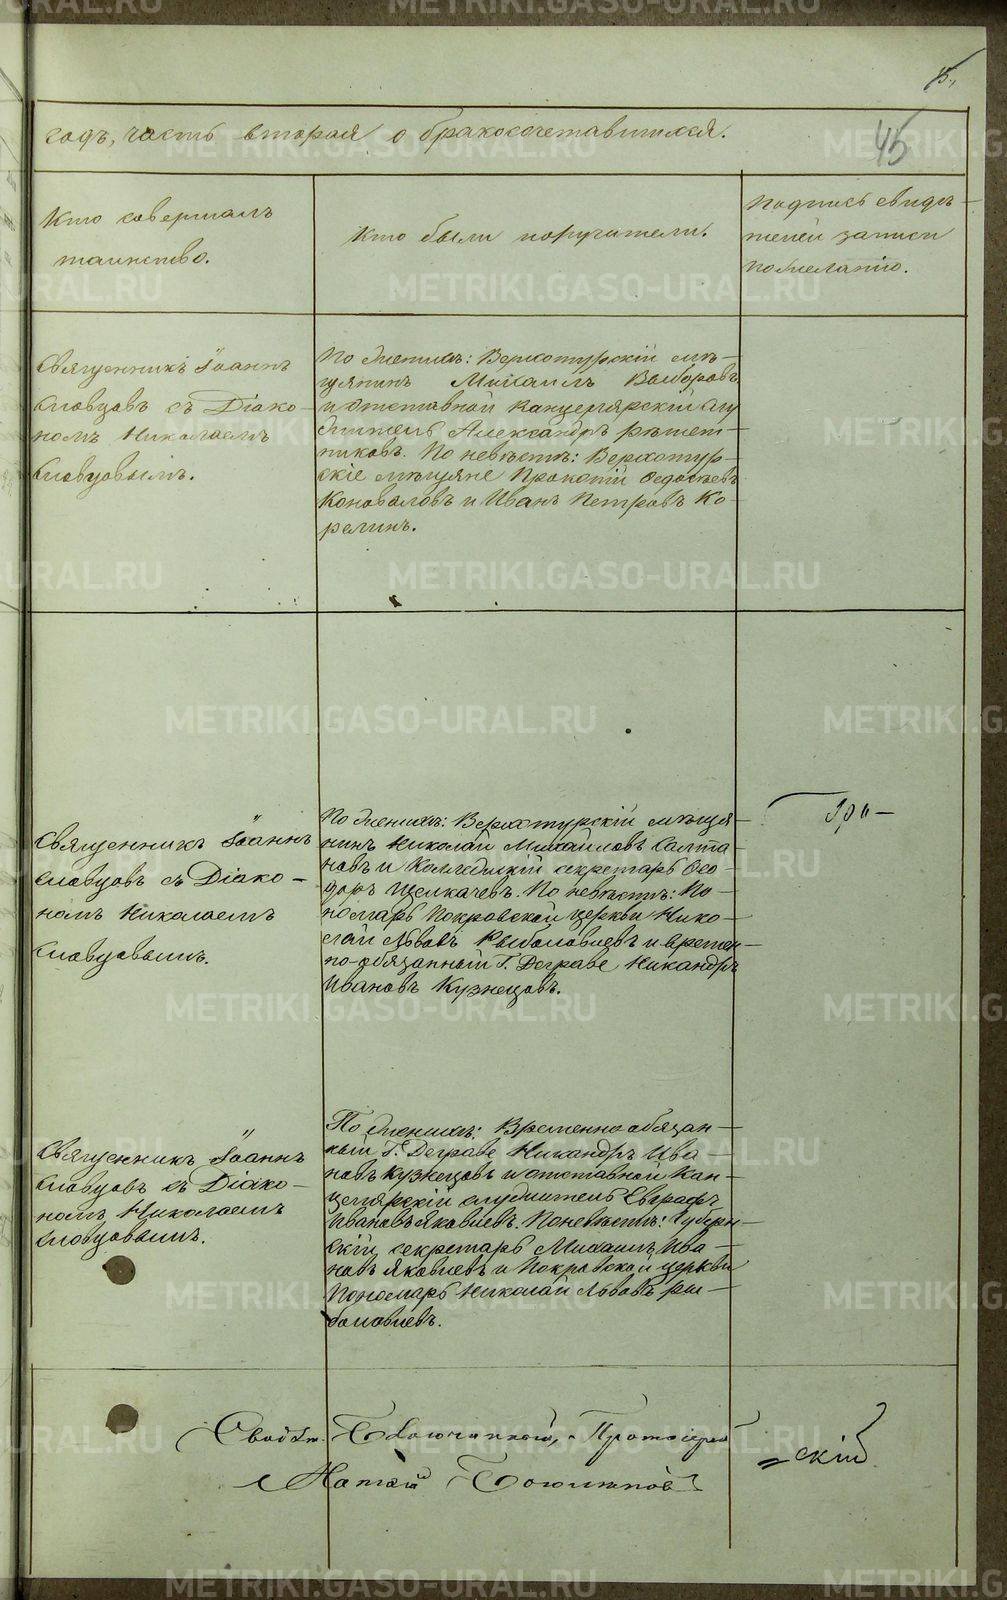 15.
45
годъ, часть вторая о бракосочетавшихся.
Кто совершалъ
таинство.
Кто были поручители.
Подпись свидѣ-
телей записи
по желанію.
Священникъ Іоаннъ
Словцовъ съ Діако-
номъ Николаемъ
Словцовымъ.
По женихѣ: Верхотурскій мѣ-
щанинъ Михаилъ
и отставной Канцелярскій слу
житель Александръ Рѣшет-
никовъ. По невѣстѣ: Верхотур-
скіе мѣщане Прокопій Федосѣевъ
Коноваловъ и Иванъ Петровъ Ко-
релинъ.
Священникъ Іоаннъ
Словцовъ съ Діако-
номъ Николаемъ
Словцовымъ.
По женихѣ: Верхотурскій мѣща-
нинъ Николай Михайловъ Салта-
новъ и Коллежскій секретарь Ѳео-
доръ Щелкачевъ. По невѣстѣ: По-
номарь Покровской церкви Нико-
лай Львовъ Рыболовлевъ и времен-
но-обязанный Г. Деграве Никандръ
Ивановъ Кузнецовъ.
Священникъ Іоаннъ
Словцовъ съ Діако-
номъ Николаемъ
Словцовымъ.
По женихѣ: Временно обязан-
ный Г. Деграве Никандръ Ива-
новъ Кузнецовъ и отставной Кан-
целярскій служитель Евграфъ
Ивановъ Яковлевъ. По невѣстѣ: Губерн-
скій секретарь Михаилъ Ива-
новъ Яковлевъ и Покровской церкви
Пономарь Николай Львовъ Ры-
боловлевъ.
Протоіерей
=скій
METRIKI.GASO-URAL.RU